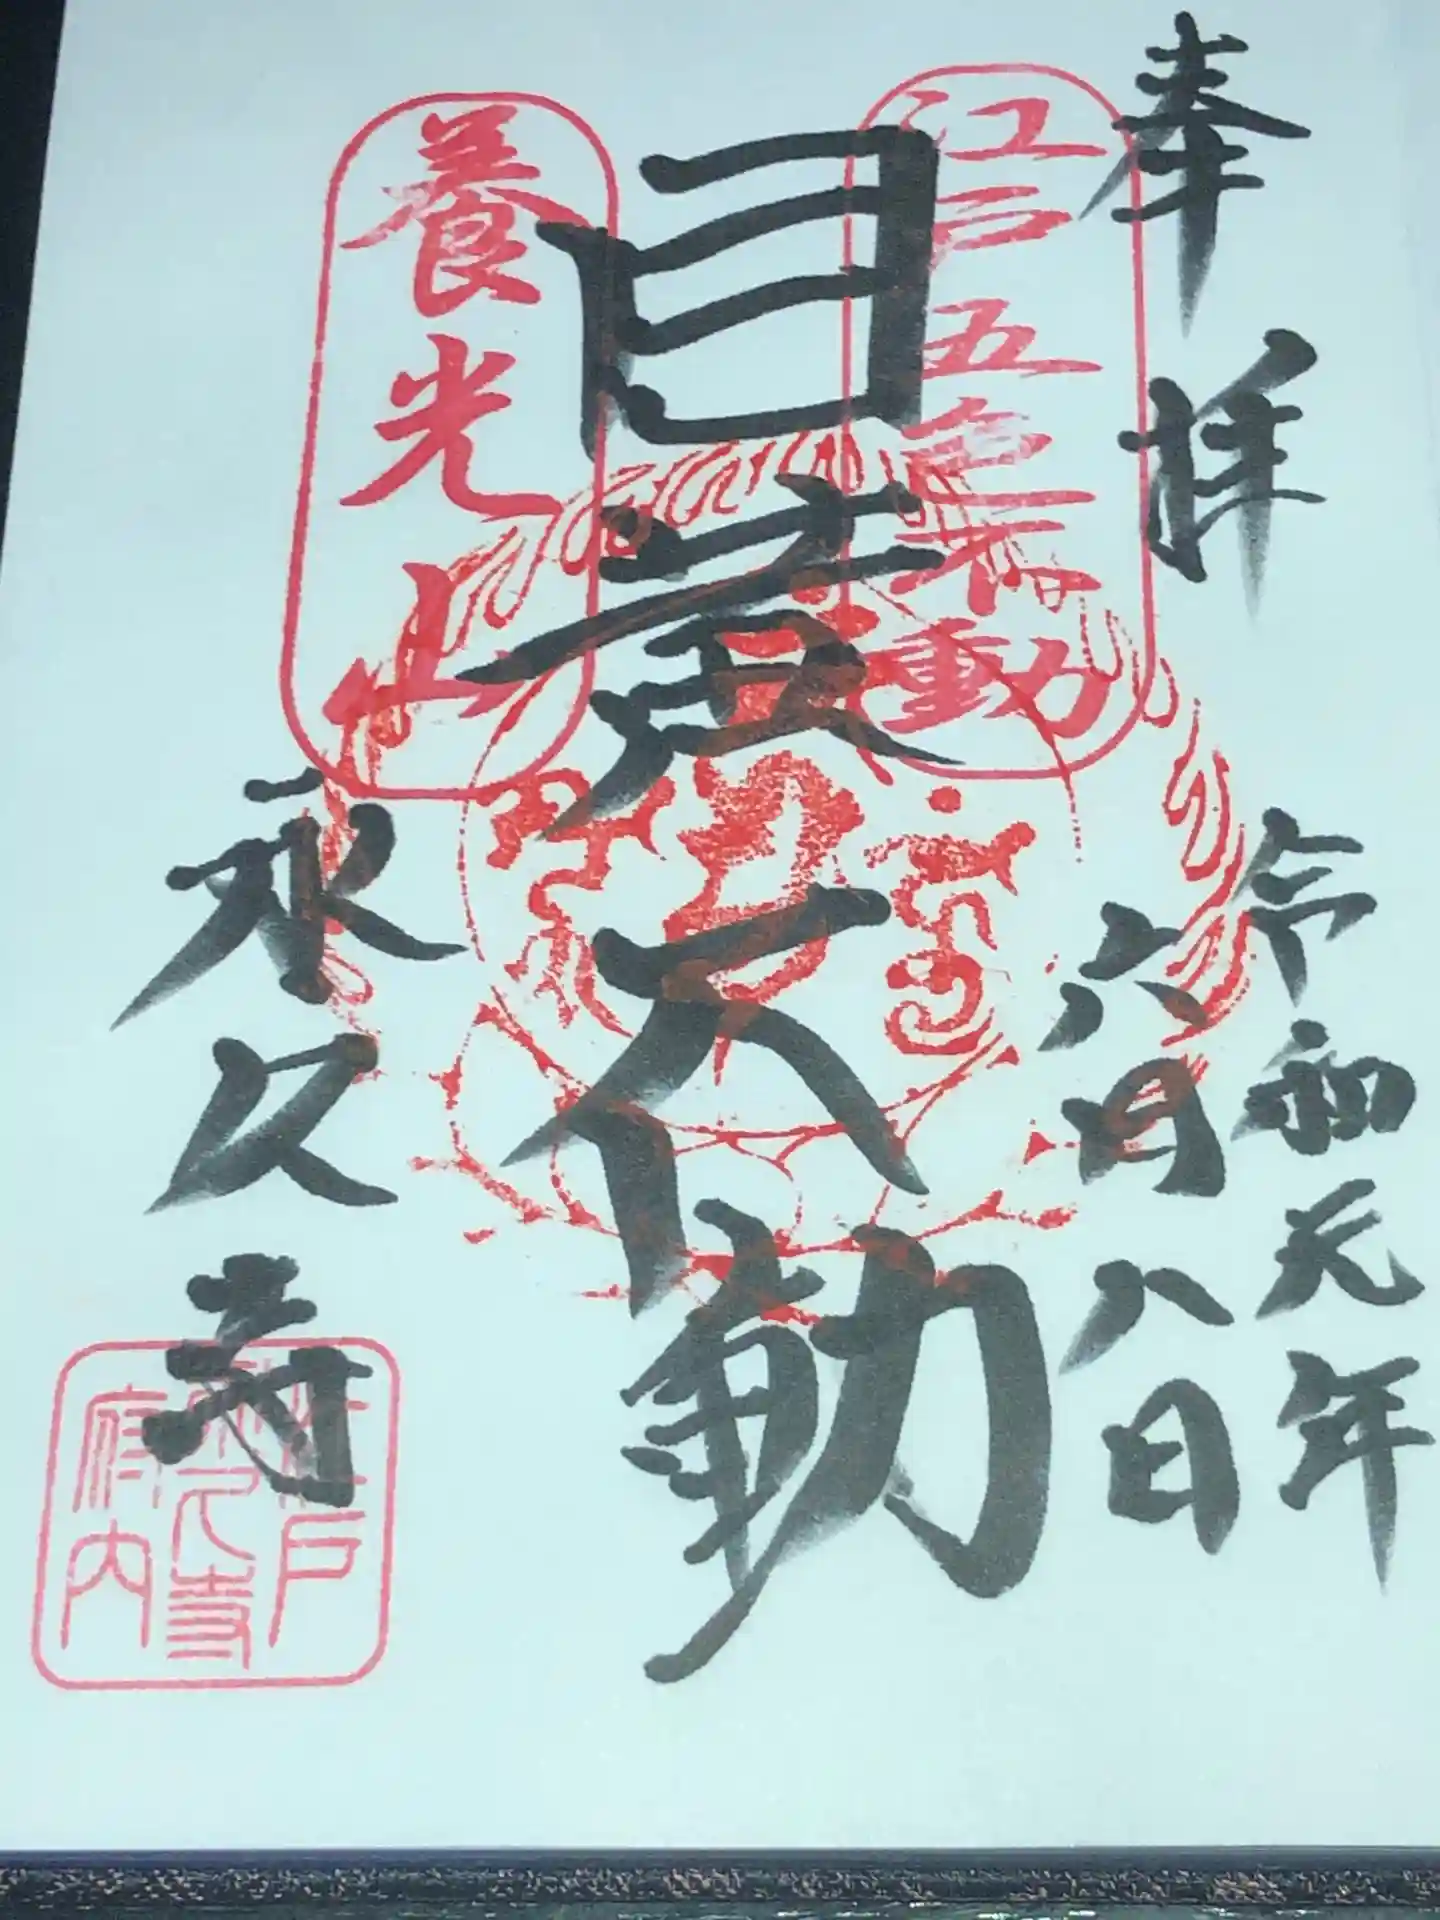 奉拝
令和元年
六月八日
江戸五色不動
目黄不動
養光山
永久寺
江戸
永久寺
府内